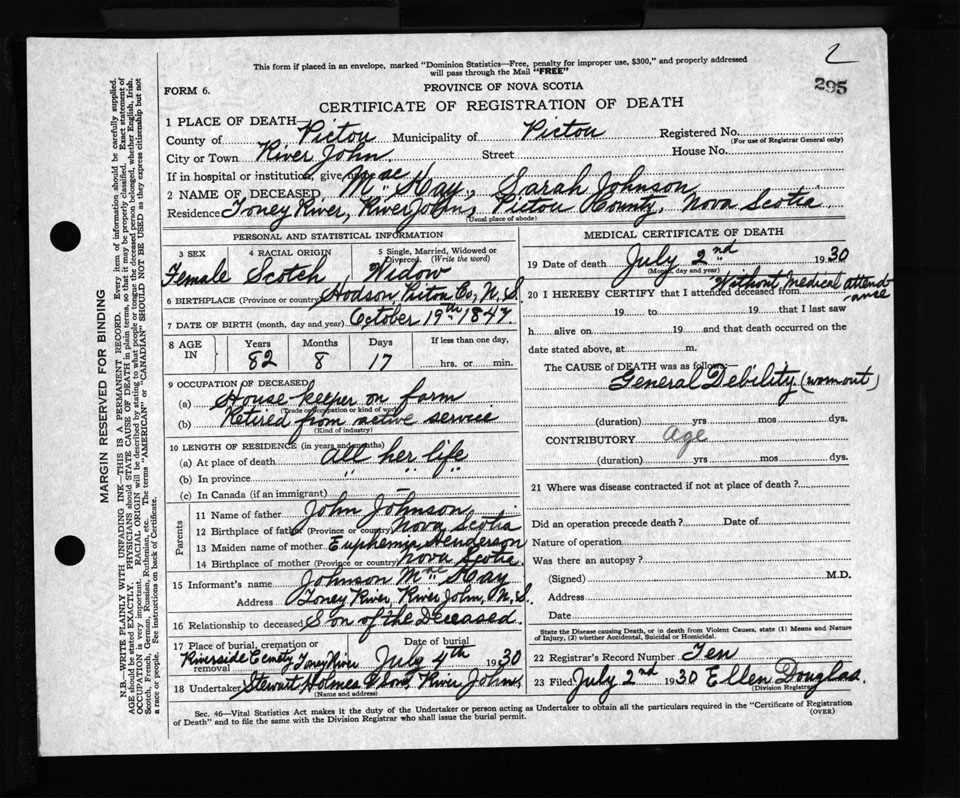 2
This form if placed in an envelope, marked "Dominion Statistics—Free, penalty for improper use, $300," and properly addressed
will pass through the Mail "FREE"
295
FORM 6.
PROVINCE OF NOVA SCOTIA
CERTIFICATE OF REGISTRATION OF DEATH
1 PLACE OF DEATH—
County of Pictou Municipality of Pictou Registered No.
(For use of Registrar General only)
City or Town River John Street House No.
If in hospital or institution, give name
2 NAME OF DECEASED MacKay, Sarah Johnson
Residence Toney River, River John, Pictou County, Nova Scotia
(Usual place of abode)
PERSONAL AND STATISTICAL INFORMATION
3 SEX 4 RACIAL ORIGIN 5 Single, Married, Widowed or Divorced. (Write the word)
Female Scotch Widow
6 BIRTHPLACE (Province or country) Hodson, Pictou Co, N. S.
7 DATE OF BIRTH (month, day and year) October 19th 1847.
8 AGE IN Years Months Days If less than one day,
82 8 17 hrs. or min.
9 OCCUPATION OF DECEASED
(a) House-keeper on farm
(Trade, occupation or kind of work)
(b) Retired from active service
(Kind of industry)
10 LENGTH OF RESIDENCE (in years and months)
(a) At place of death all her life
(b) In province " " "
(c) In Canada (if an immigrant) –
Parents
11 Name of father John Johnson
12 Birthplace of father (Province or country) Nova Scotia
13 Maiden name of mother Euphemia Henderson
14 Birthplace of mother (Province or country) Nova Scotia
15 Informant's name Johnson MacKay
Address Toney River, River John, N. S.
16 Relationship to deceased Son of the Deceased.
17 Place of burial, cremation or removal Date of burial
Riverside Cemety Toney River July 4th 1930
18 Undertaker Stewart Holmes & Sons, River John,
MEDICAL CERTIFICATE OF DEATH
19 Date of death July 2nd 1930
(Month, day and year)
20 I HEREBY CERTIFY that I attended deceased from Without medical attend-
ance
19 to 19 that I last saw
h alive on 19 and that death occurred on
date stated above, at m.
The CAUSE of DEATH was as follows:
General Debility (wornout)
(duration) yrs mos dys.
CONTRIBUTORY age
(duration) yrs mos dys.
21 Where was disease contracted if not at place of death?
Did an operation precede death? Date of
Nature of operation
Was there an autopsy?
(Signed) M.D.
Address
Date
State the Disease causing Death, or in death from Violent Causes, state (1) Means and Nature
of Injury, (2) whether Accidental, Suicidal or Homicidal.
22 Registrar's Record Number Ten
23 Filed July 2nd 1930 Ellen Douglas.
(Division Registrar)
Sec. 46—Vital Statistics Act makes it the duty of the Undertaker or person acting as Undertaker to obtain all the particulars required in the "Certificate of Registration
of Death" and to file the same with the Division Registrar who shall issue the burial permit.
(OVER)
MARGIN RESERVED FOR BINDING
N.B.—WRITE PLAINLY WITH UNFADING INK—THIS IS A PERMANENT RECORD. Every item of information should be carefully supplied.
AGE should be stated EXACTLY. PHYSICIANS should STATE CAUSE OF DEATH in plain terms, so that it may be properly classified. Exact statement of
OCCUPATION is very important. RACIAL ORIGIN will be described by stating to what people or tongue the deceased person belonged, whether English, Irish,
Scotch, French, German, Russian, Ruthenian, etc. The terms "AMERICAN" or "CANADIAN" SHOULD NOT BE USED as they express citizenship but not
a race or people. See instructions on back of Certificate.